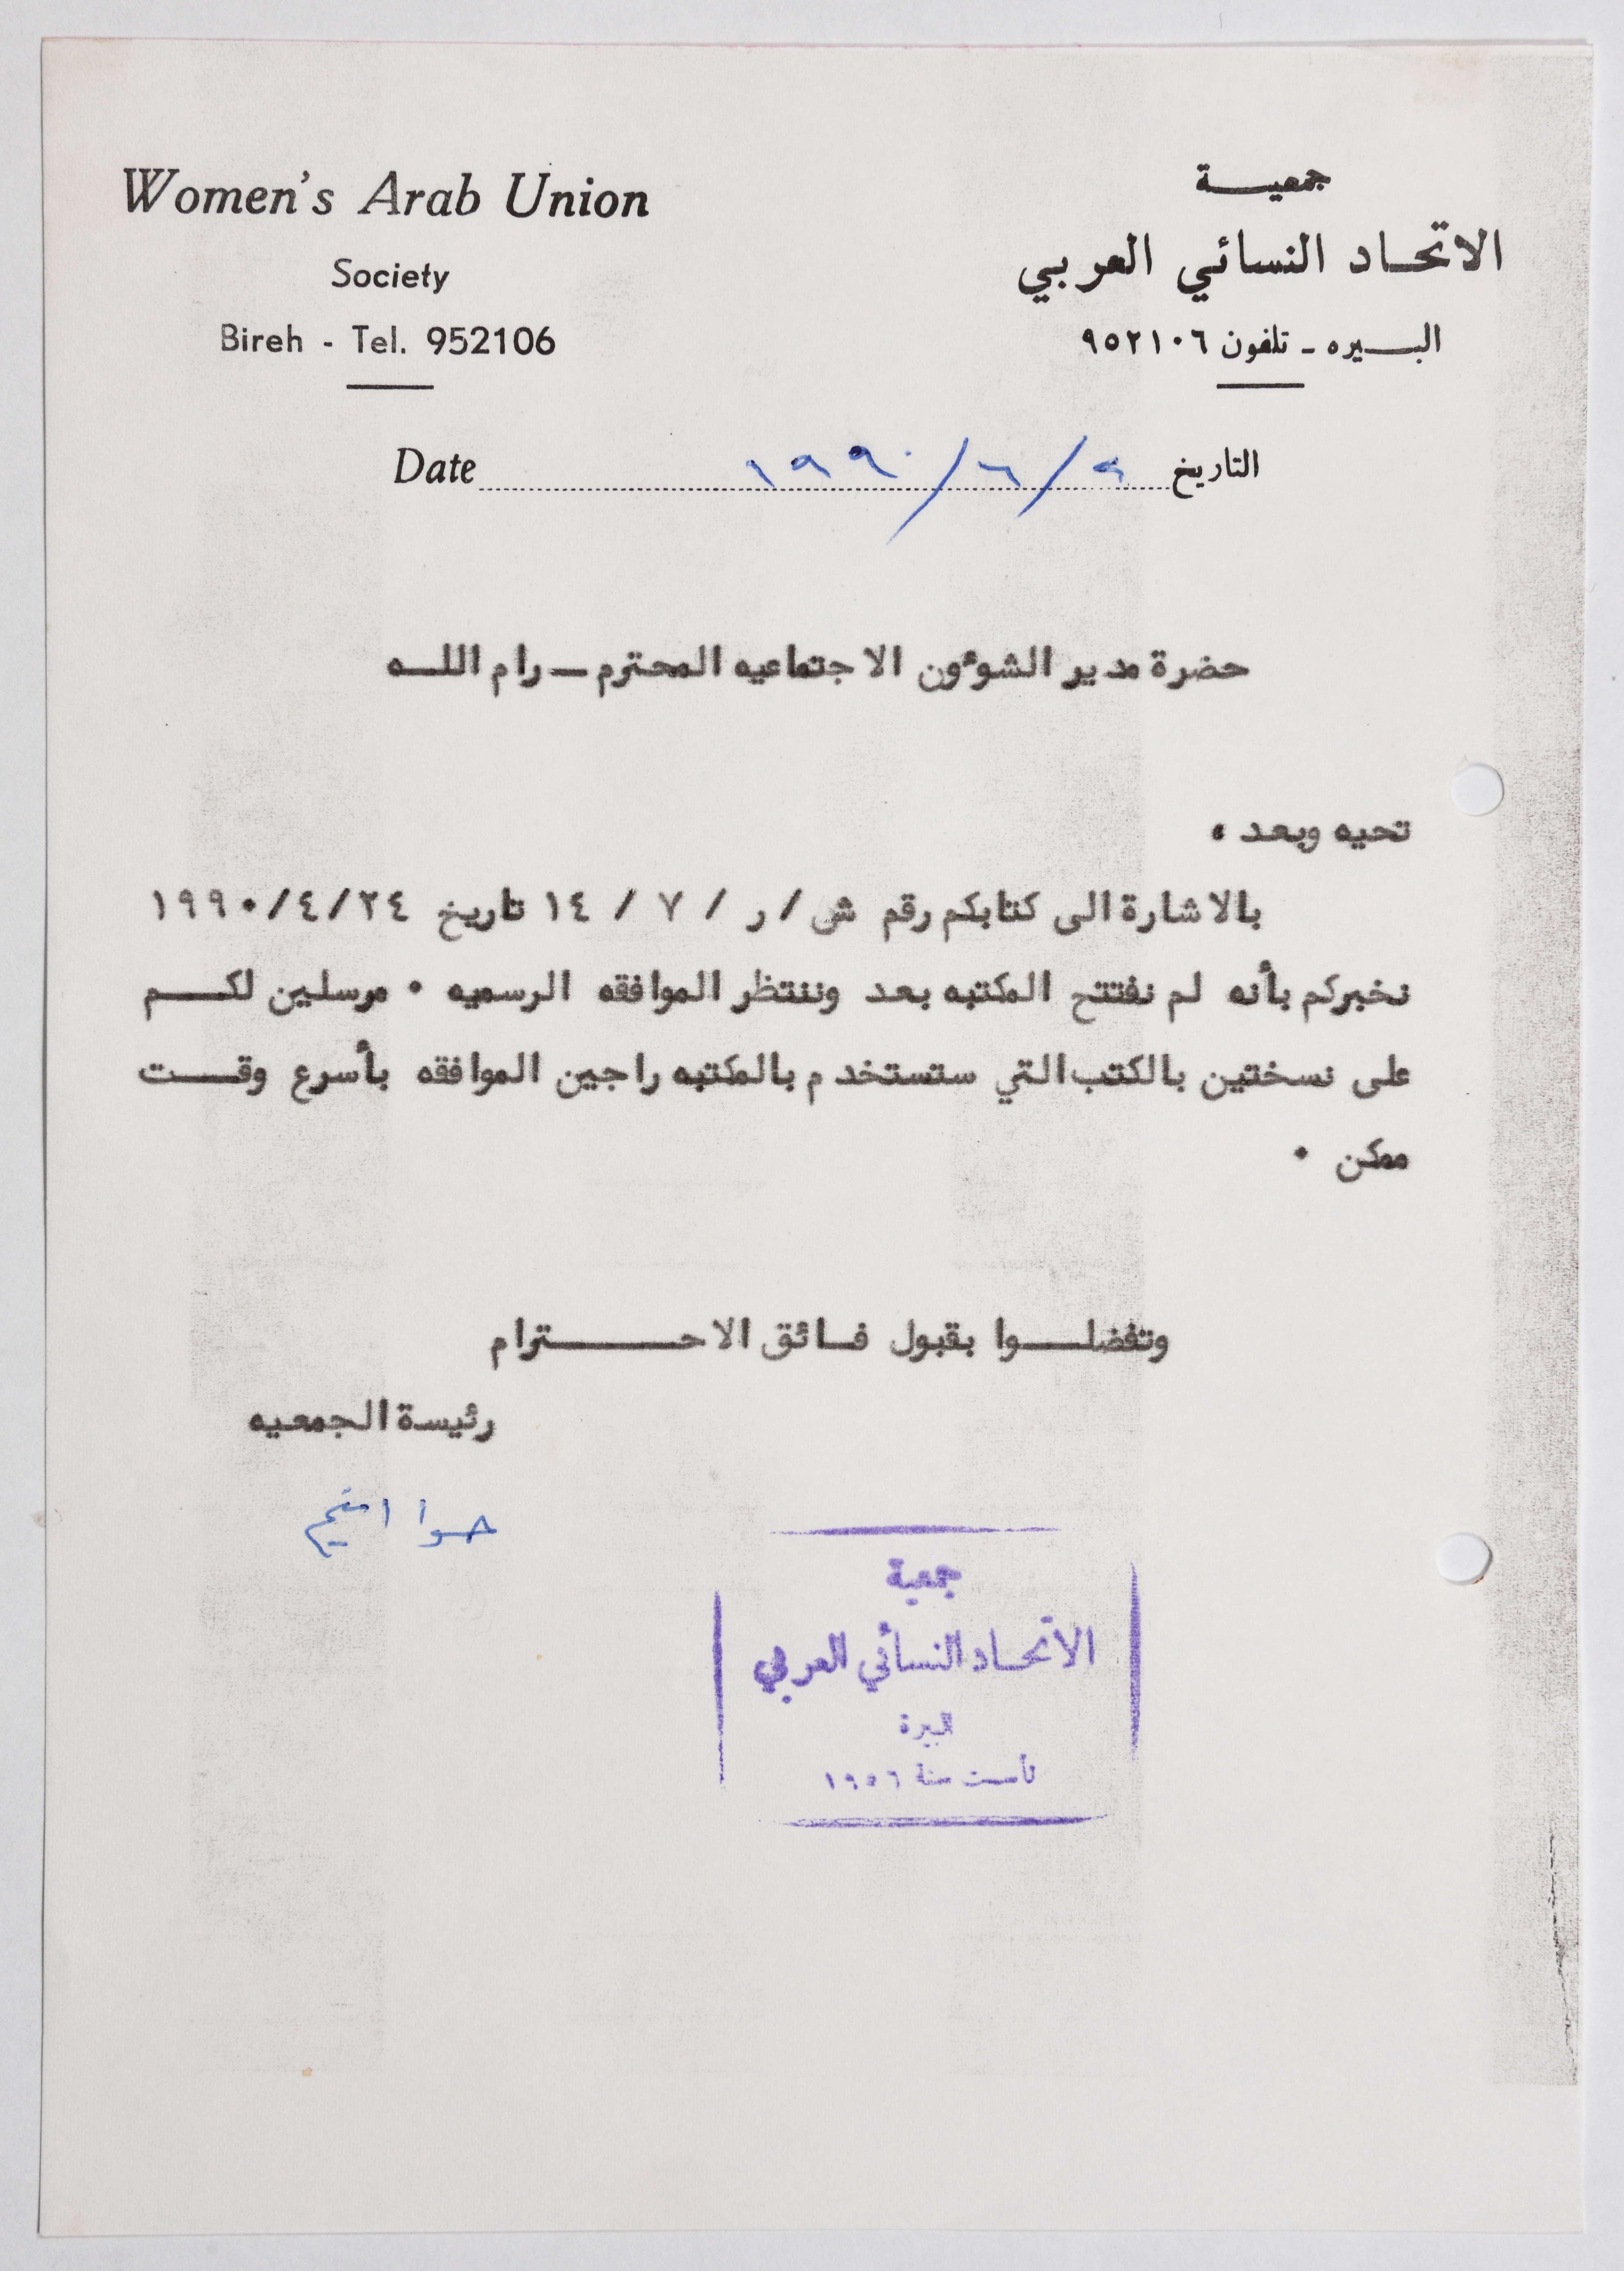 Women's Arab Union
Society
Bireh - Tel. 952106
جمعيـــة
الاتحـاد النسائي العربي
البـــيره ـ تلفون ٩٥٢١٠٦
Date التاريخ ٩/٦/١٩٩٠
حضرة مدير الشوءون الاجتماعيه المحترم ـ رام اللـه
تحيه وبعد ،
بالاشارة الى كتابكم رقم ش/ ر / ٧ / ١٤ تاريخ ٢٤/٤/١٩٩٠
نخبركم بأنه لم نفتتح المكتبه بعد وننتظر الموافقه الرسميه . مرسلين لكـــم
على نسختين بالكتب التي ستستخدم بالمكتبه راجين الموافقه بأسرع وقـــت
ممكن .
وتفضلـــوا بقبول فـائق الاحـــــترام
رئيسة الجمعيه
حوا
جمعية
الاتحـاد النسائي العربي
البيرة
تأسست سنة ١٩٥٦